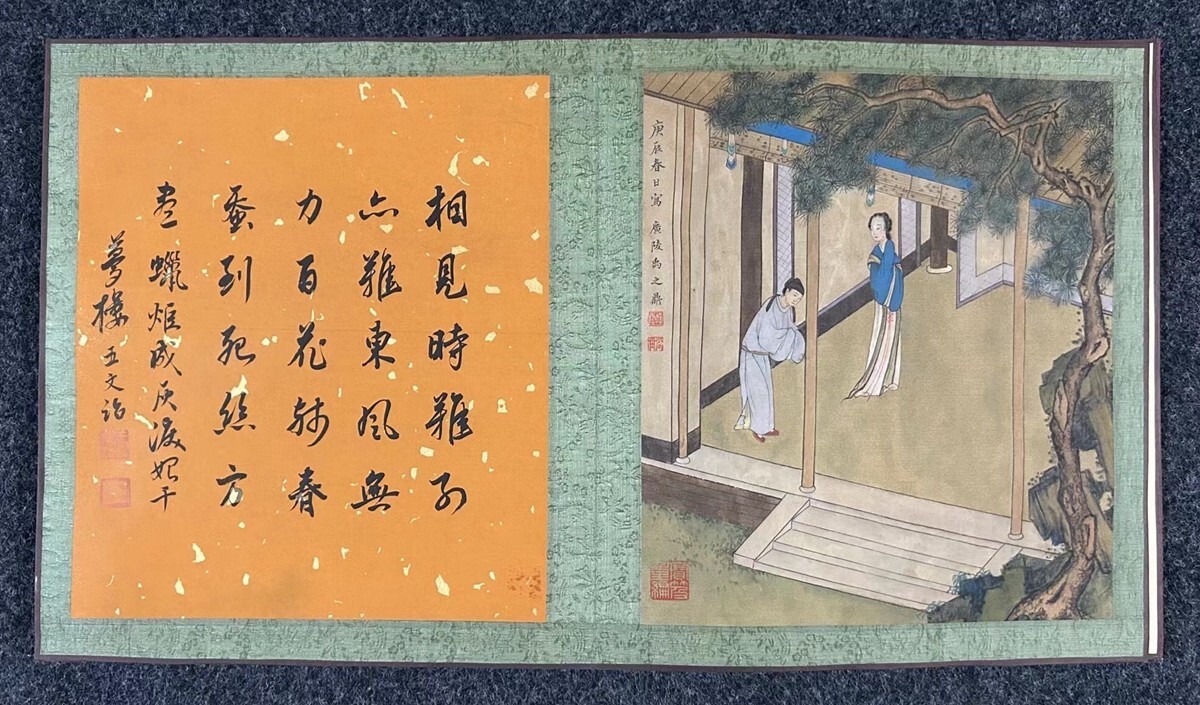 庚辰春日寫 廣陵禹之鼎
相見時難別
亦難東風無
力百花殘春
蚕到死絲方
盡蠟炬成灰淚始干
夢樓王文治